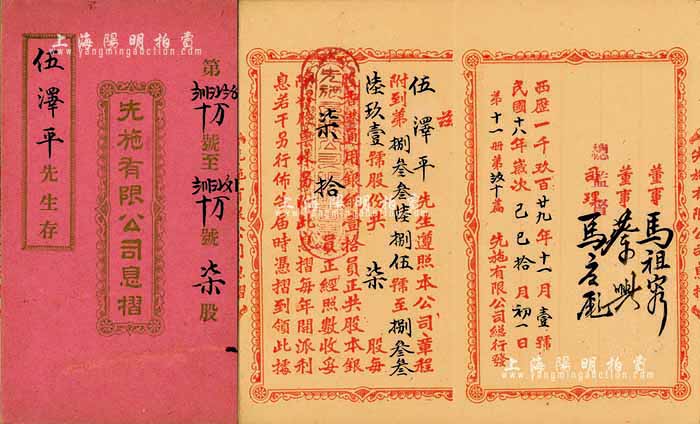 上海陽明拍賣
www.yangmingauction.com
第
號至
號
柒
股
先施有限公司息摺
伍澤平先生存
上海陽明拍賣
www.yangmingauction.com
董事 馬祖容
董事 蔡興
總監督
司理 馬應彪
西歷一千九百廿九年十一月壹號
民國十八年歲次己巳拾月初一日
第十一冊第 篇 先施有限公司總行發
茲
伍澤平先生遵照本公司章程
附到第捌叁叁陸捌伍號至捌叁叁
陸玖壹號股份共 柒 股每
股香港通用銀壹拾員正共股本銀
柒拾 員正經照數收妥
此息摺每年開派利
息若干另行佈告屆時憑摺到領此據
上海陽明拍賣
www.yangmingauction.com